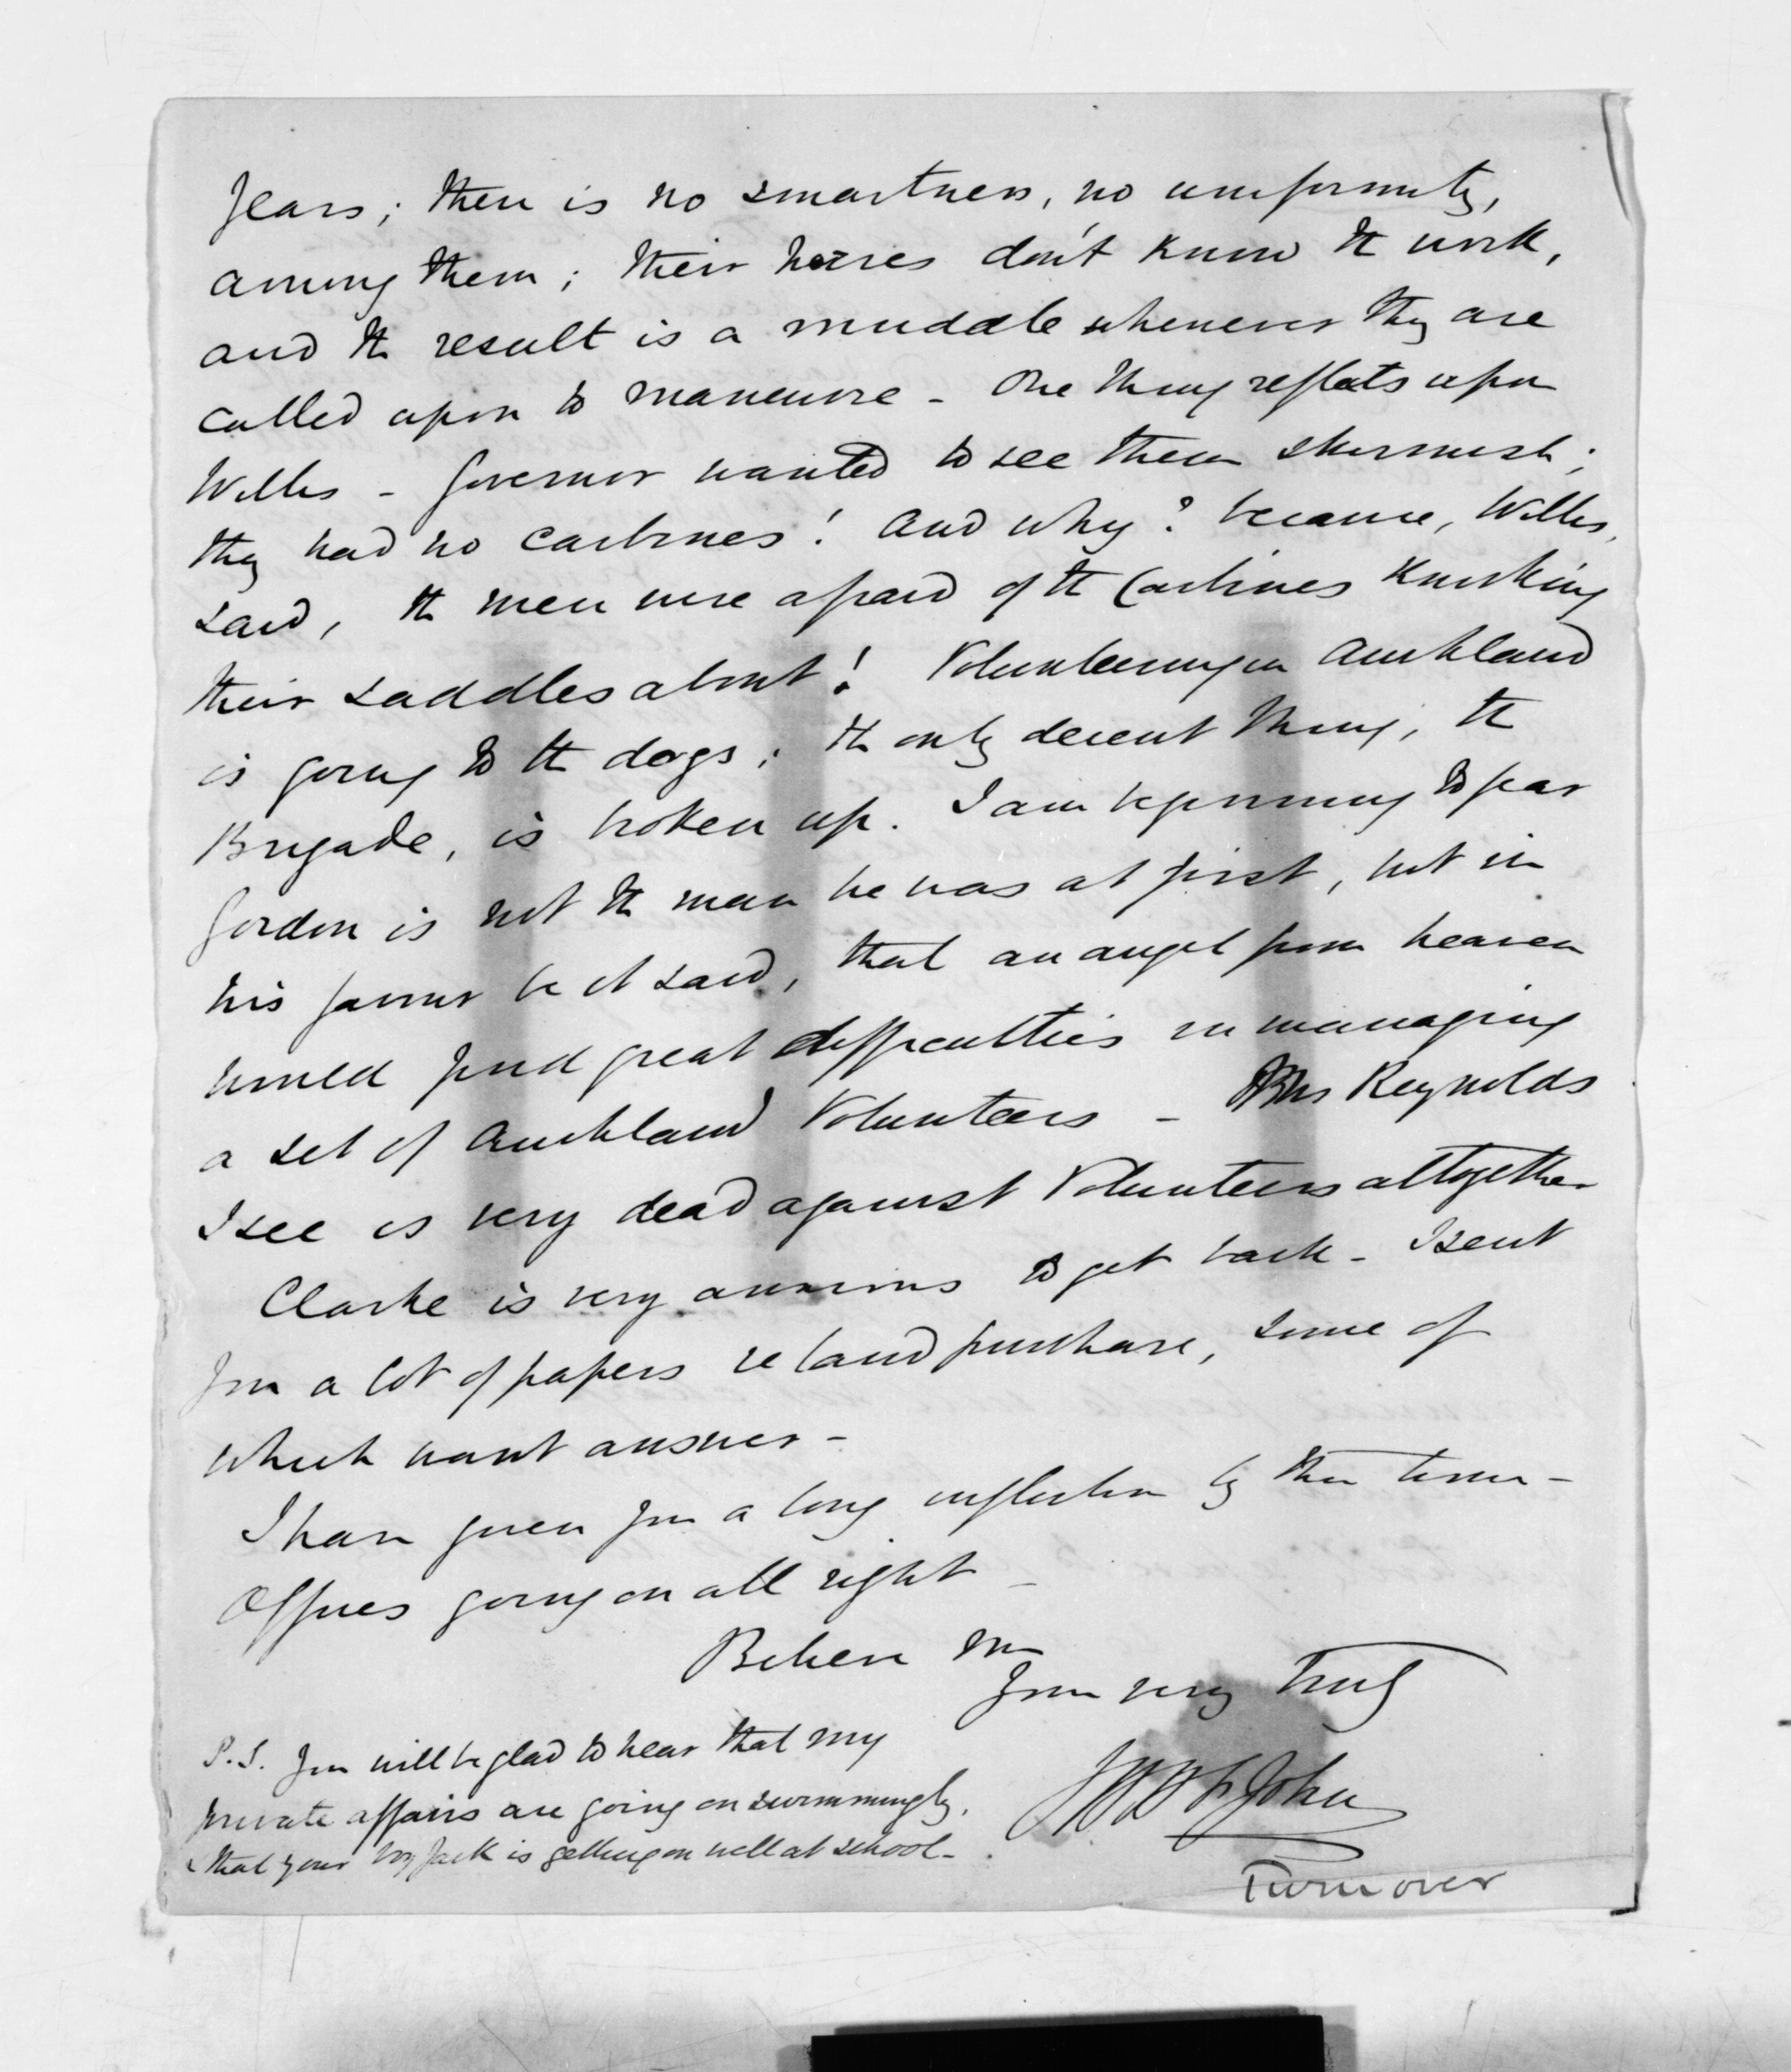 years; there is no smartness, no uniformity,
among them; their horses don't know the work,
and the result is a muddle whenever they are
called upon to maneuvre - One thing reflects upon
Willis - Governor wanted to see them skirmish;
they had no carbines! And why? because, Willis,
said, the men were afraid of the Carbines knocking
their saddles about! Volunteering in Auckland
is going to the dogs; the only decent thing, the
Brigade, is broken up. I am beginning to fear
Gordon is not the man he was at first, but in
his favour be it said, that an angel from heaven
would find great difficulties in managing
a set of Auckland Volunteers - Reynolds
I see is very dead against Volunteers altogether
Clarke is very anxious to get back - I sent
you a lot of papers re land purchase, some of
which want answer -
I have given you a long infliction by this time -
Offices going on all right -
Believe me
Your very Truly
JHH St John
P.S. You will be glad to hear that my
private affairs are going on swimmingly,
& that your boy Jack is getting on well at school -
Turn over